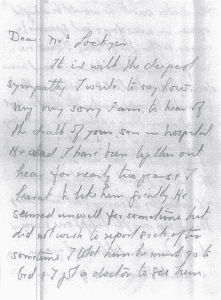 Dear Mrs Lockyer
It is with the deepest
sympathy I write to say how
very very sorry I am to hear of
the death of your son in hospital
He and I have been together out
here for nearly two years. I
learnt to like him greatly. He
seemed unwell for sometime but
did not wish to report sick after
sometime I told him he must go to
bed & I got a doctor to see him.